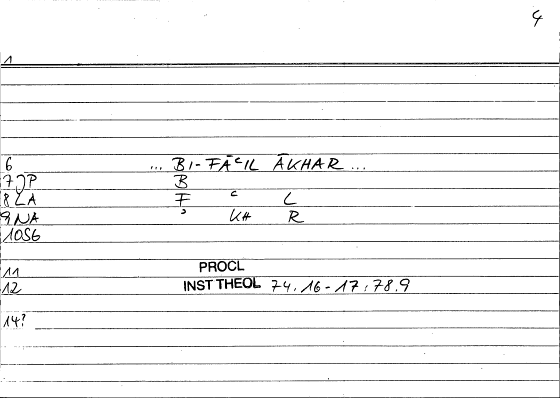 4
1
6 ... BI-FĀʿIL ĀKHAR ...
7 JP B
8 LA F ʿ L
9 NA ʾ KH R
10 SG
11 PROCL
12 INST THEOL 74.16-17:78.9
14?